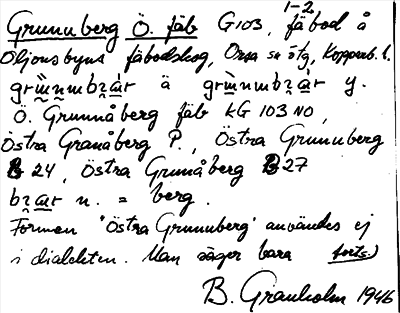 1-2
Grunuberg Ö. fäb G103, fäbod å
Oljonsbyns fäbodskog, Orsa sn östg, Kopparb. l.
Ö. Grunuåberg fäb KG 103 NO,
Östra Granåberg P., Östra Grunuberg
B 24, Östra Grunåberg B 27
n. = berg.
Formen "Östra Grunuberg" användes ej
i dialekten. Man säger bara forts.)
B. Granholm 1946